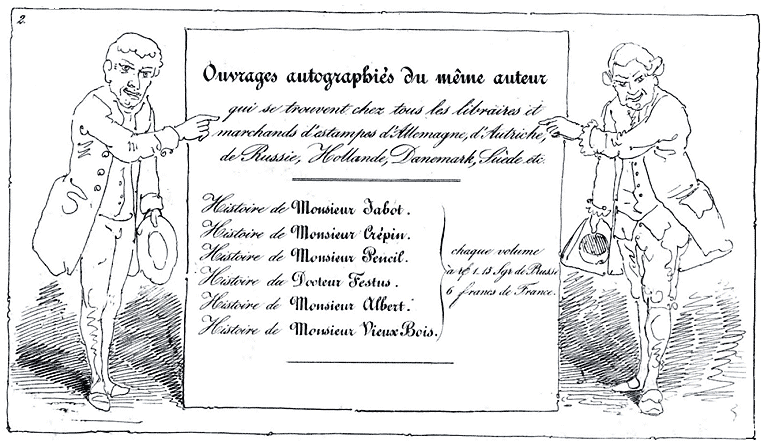 2.
Ouvrages autographiés du même auteur
qui se trouvent chez tous les libraires et
marchands d'estampes d'Allemagne, d'Autriche,
de Russie, Hollande, Danemark, Suède etc.
Histoire de Monsieur Jabot.
Histoire de Monsieur Crépin.
Histoire de Monsieur Pencil.
Histoire du Docteur Festus.
Histoire de Monsieur Albert.
Histoire de Monsieur Vieux Bois.
chaque volume
à 1. 15 Sgr de Prusse
6 francs de France.